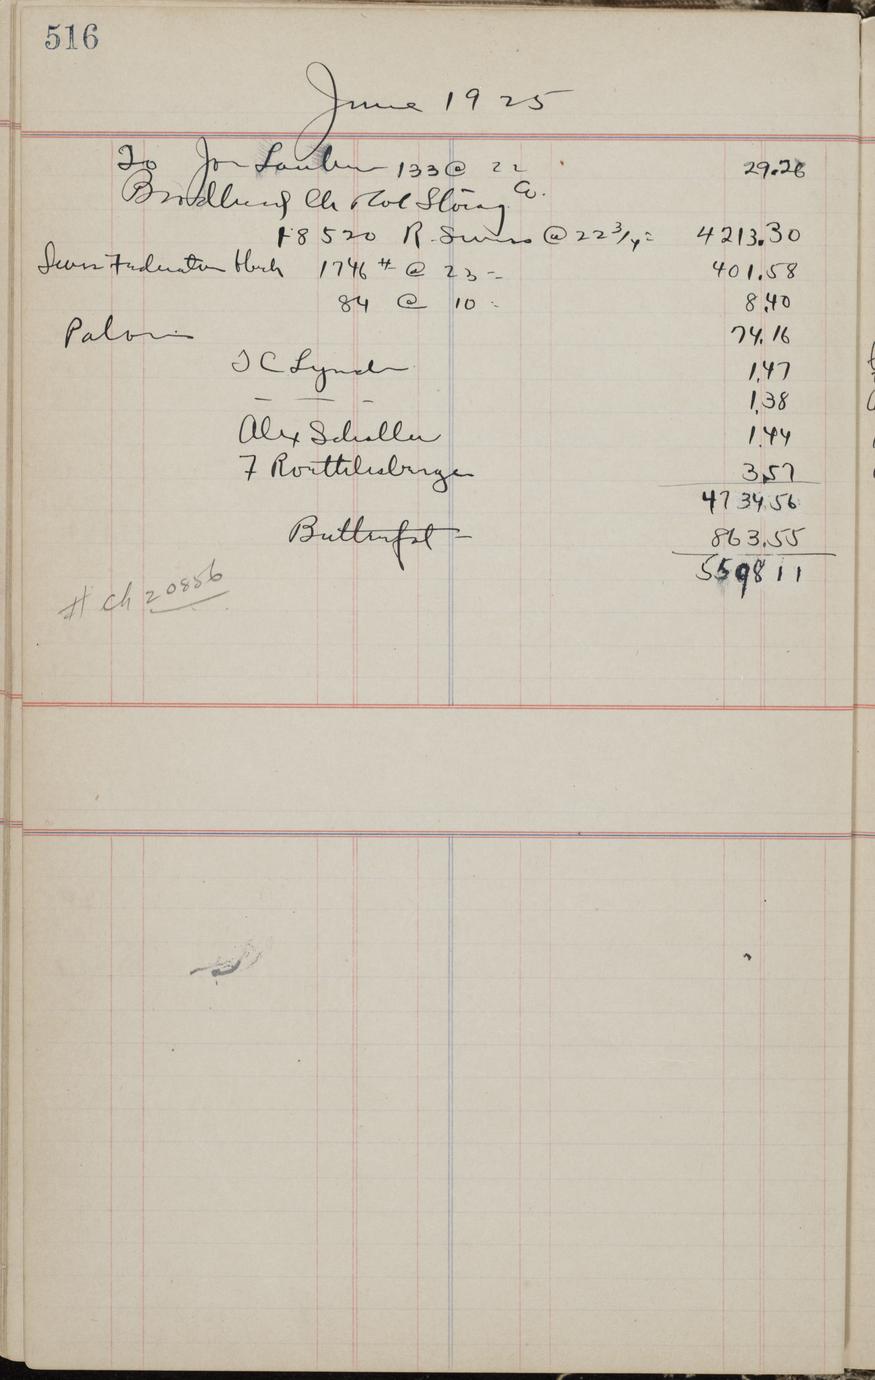 516
June 1925
To Jos Lauber 133 @ 22 29.26
Brodhead Ch & Col Storag Co.
18520 R. Swiss @ 22 3/4 = 4213.30
Swiss Federation Block 1746 # @ 23 = 401.58
84 @ 10 = 8.40
Patrons 74.16
T C Lynch 1.47
— — — 1.38
Alex Schaller 1.44
F Roethlisberger 3.57
4734.56
Butterfat — 863.55
5598 11
# Ch 20886